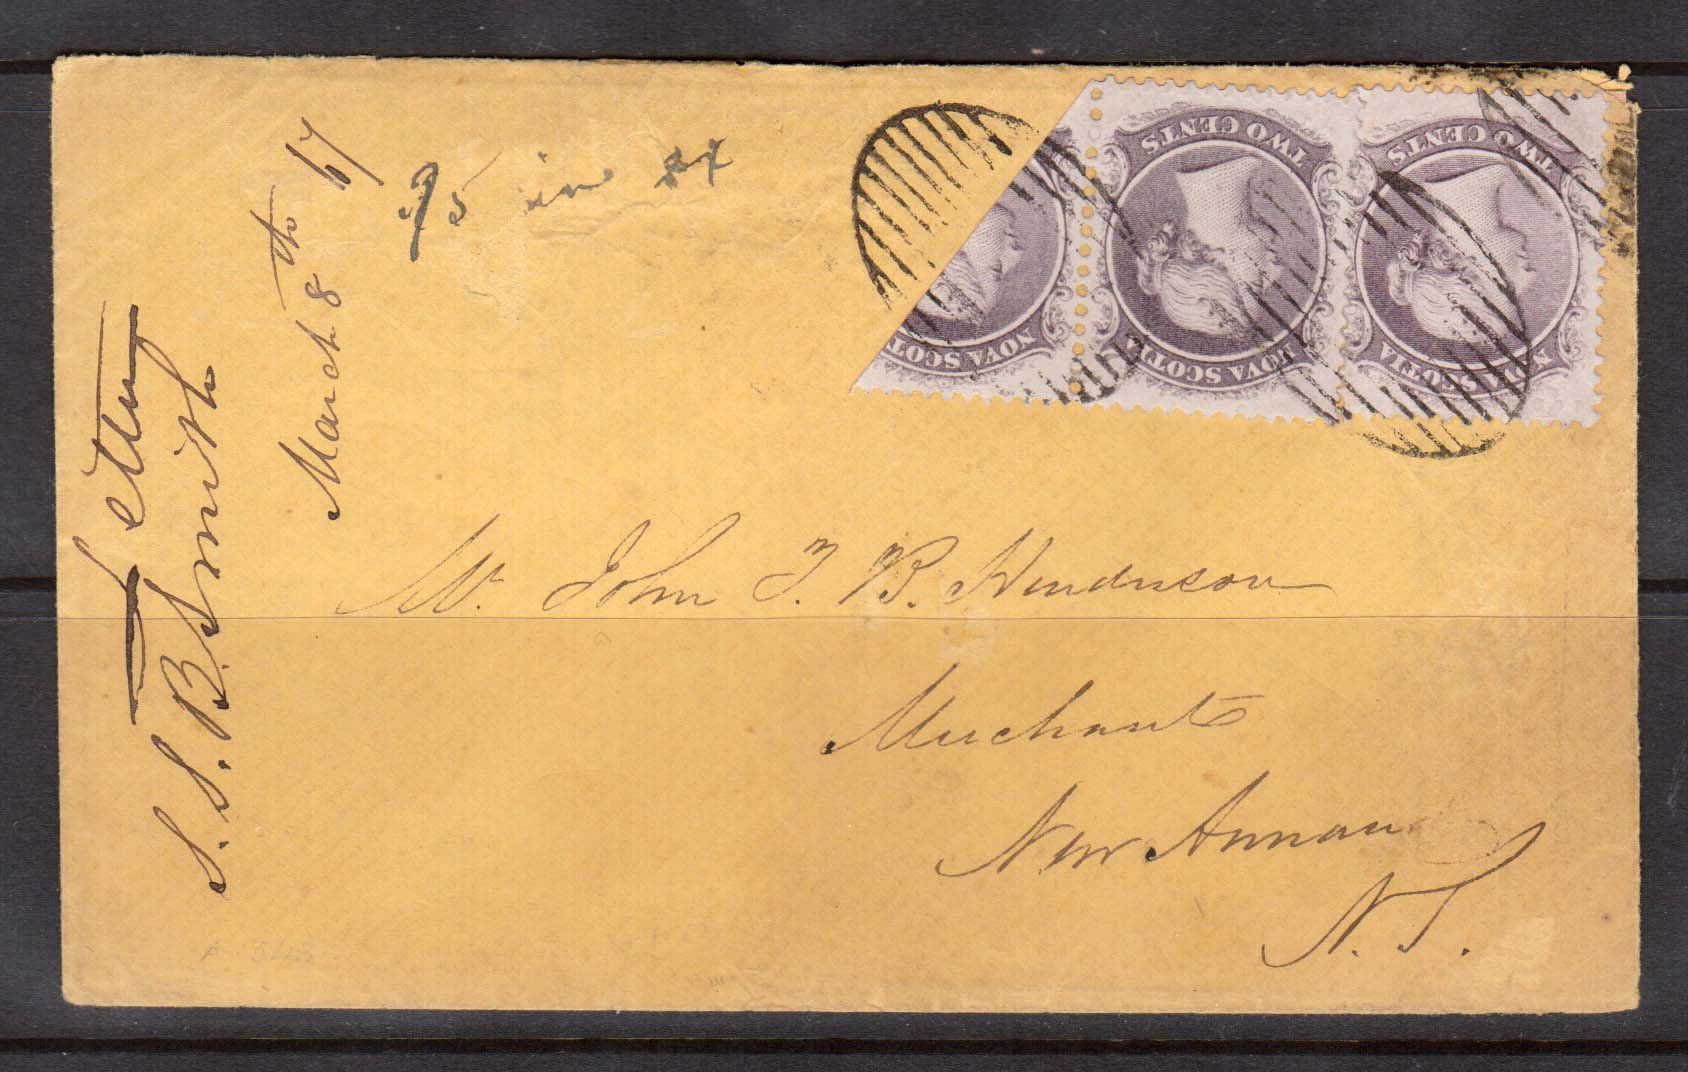 Letter
S. S. B. Smith
March 8th 67
95 in
TWO CENTS
NOVA SCOTIA
TWO CENTS
NOVA SCOTIA
NOVA SCOT
Mr. John T. B. Henderson
Merchant
New Annan
N. S.